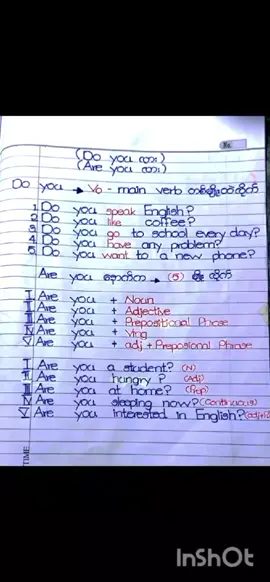 No.
(Do you လား)
(Are you လား)
Do you → V₀ - main verb တစ်မျိုးပဲလိုက်
1 Do you speak English?
2 Do you like coffee?
3 Do you go to school every day?
4 Do you have any problem?
5 Do you want to a new phone?
Are you နောက်က → (၅) မျိုး လိုက်
I Are you + Noun
II Are you + Adjective
III Are you + Prepositional Phrase
IV Are you + Ving
V Are you + adj + Preposional Phrase
I Are you a student? (N)
II Are you hangry? (Adj)
III Are you at home? (Prep)
IV Are you sleeping now? (Continuous)
V Are you interested in English?
TIME
InShOt